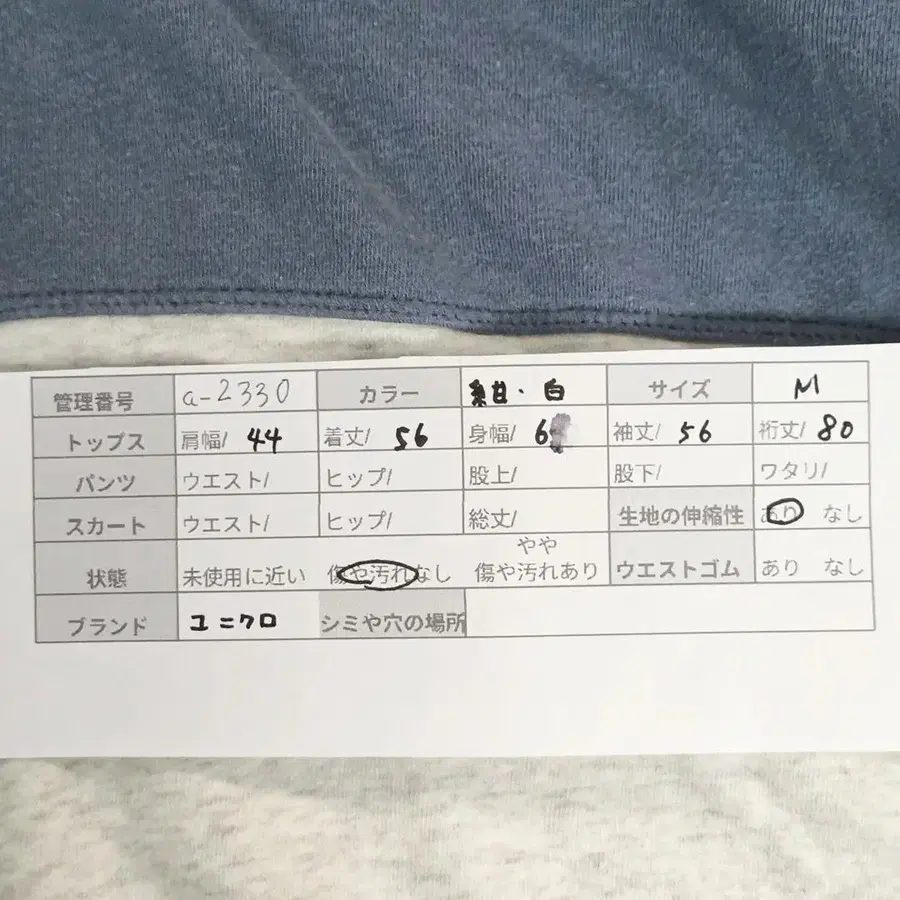 管理番号 a-2330 カラー 紺・白 サイズ M
トップス 肩幅/ 44 着丈/ 56 身幅/ 袖丈/ 56 裄丈/ 80
パンツ ウエスト/ ヒップ/ 股上/ 股下/ ワタリ/
スカート ウエスト/ ヒップ/ 総丈/ 生地の伸縮性 あり なし
やや
状態 未使用に近い 傷や汚れなし 傷や汚れあり ウエストゴム あり なし
ブランド ユニクロ シミや穴の場所